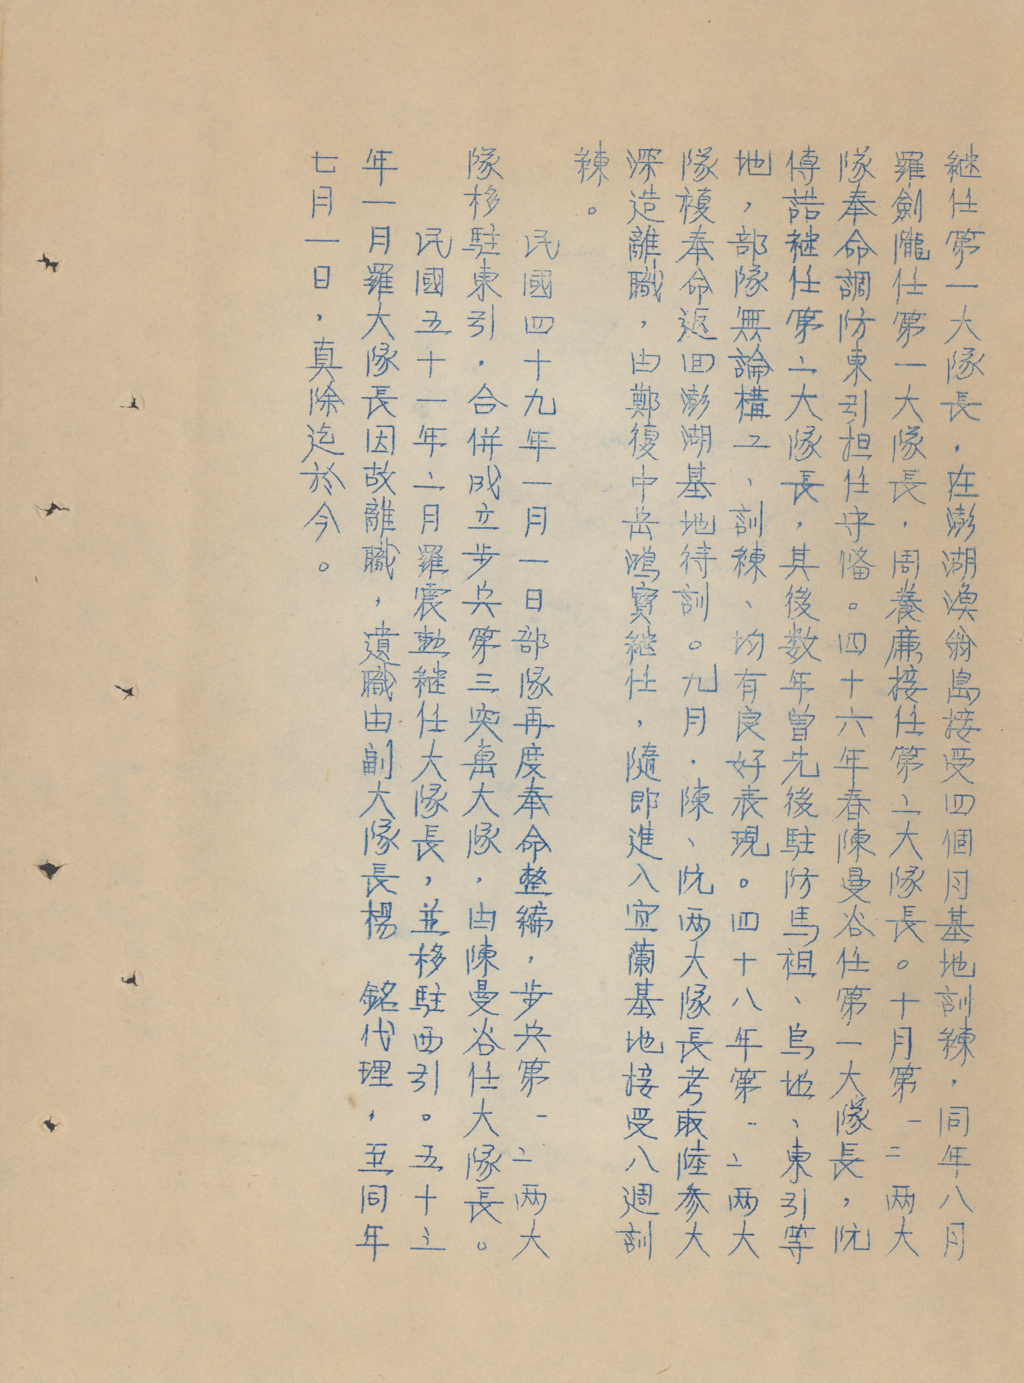 繼任第一大隊長，在澎湖漁翁島接受四個月基地訓練，同年八月
羅劍隴任第一大隊長，周養廉接任第二大隊長。十月第一二兩大
隊奉命調防東引担任守備。四十六年春陳曼谷任第一大隊長，阮
傳誥繼任第二大隊長，其後数年曾先後駐防馬祖、烏坵、東引等
地，部隊無論構工、訓練、均有良好表現。四十八年第一二兩大
隊複奉命返回澎湖基地待訓。九月，陳、阮兩大隊長考取陸參大
深造離職，由鄭復中岳鴻寶繼任，隨即進入宜蘭基地接受八週訓
練。
民國四十九年一月一日部隊再度奉命整編，步兵第一二兩大
隊移駐東引，合併成立步兵第三突擊大隊，由陳曼谷任大隊長。
民國五十一年二月羅震勳繼任大隊長，並移駐西引。五十二
年一月羅大隊長因故離職，遺職由副大隊長楊　銘代理，至同年
七月一日，真除迄於今。